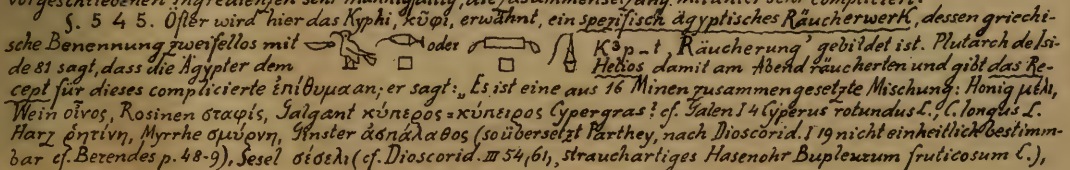 vorgeschriebenen Ingredienzen sehr mannigfaltig, die Zusammensetzung mitunter sehr compliciert.
§. 545. Öfter wird hier das Kyphi, κῦφι, erwähnt, ein spezifisch ägyptisches Räucherwerk, dessen griechi-
sche Benennung zweifellos mit oder K³p-t „Räucherung' gebildet ist. Plutarch de Isi-
de 81 sagt, dass die Ägypter dem Helios damit am Abend räucherten und gibt das Re-
cept für dieses complicierte ἐπίθυμααn; er sagt: „Es ist eine aus 16 Minen zusammengesetzte Mischung: Honig μέλι,
Wein οἶνος, Rosinen σταφίς, Galgant κύπερος = κύπειρος Cypergras? cf. Galen I 4 Cyperus rotundus L., C. longus L.
Harz ῥητίνη, Myrrhe σμύρνη, Ginster ἀσπάλαθος (so übersetzt Parthey, nach Dioscorid. I 19 nicht einheitlich bestimm-
bar cf. Berendes p. 48-9), Sesel σέσελι (cf. Dioscorid. III 54, 61, strauchartiges Hasenohr Bupleurum fruticosum L.),